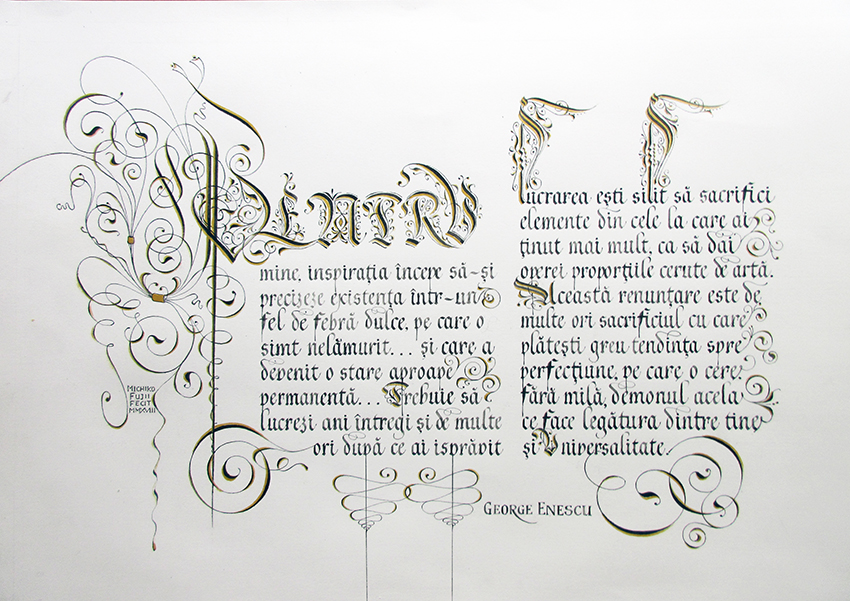 PENTRU
mine, inspirația începe să-și
precizeze existența într-un
fel de febră dulce, pe care o
simt nelămurit... și care a
devenit o stare aproape
permanentă... Trebuie să
lucrezi ani întregi și de multe
ori după ce ai isprăvit
lucrarea ești silit să sacrifici
elemente din cele la care ai
ținut mai mult, ca să dai
operei proporțiile cerute de artă.
Această renunțare este de
multe ori sacrificiul cu care
plătești greu tendința spre
perfecțiune, pe care o cere,
fără milă, demonul acela
ce face legătura dintre tine
și Universalitate.
GEORGE ENESCU
MICHIKO
FUJII
FECIT
MMXVII